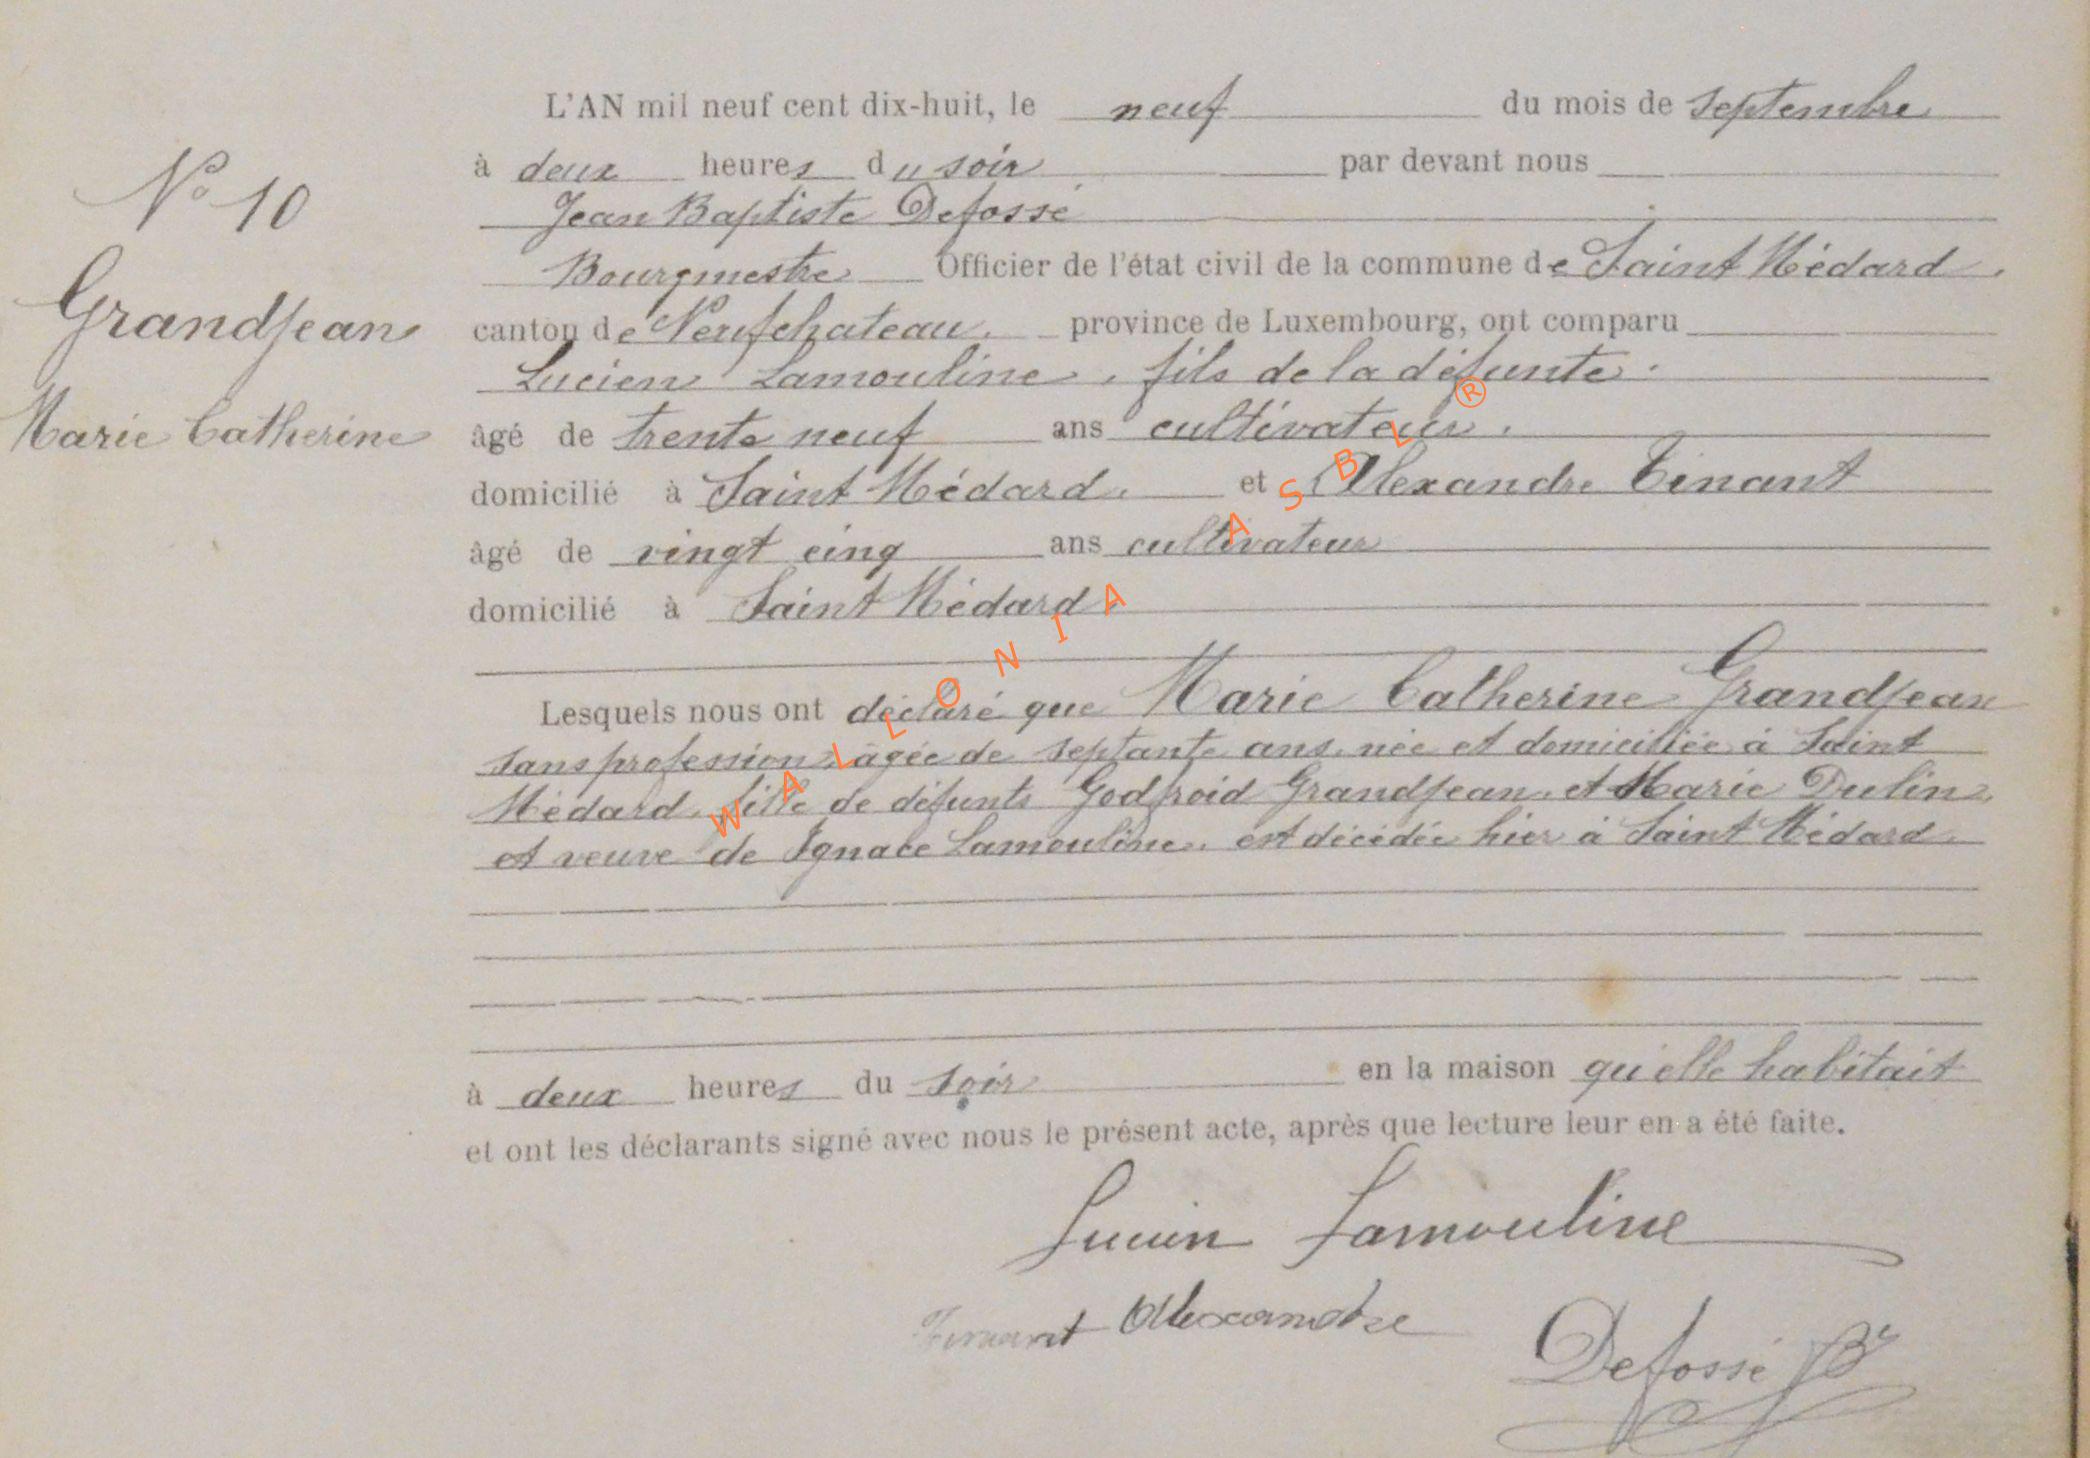 L'AN mil neuf cent dix-huit, le neuf du mois de septembre
à deux heures du soir par devant nous
Jean Baptiste Defossé
Bourgmestre Officier de l'état civil de la commune de Saint Médard.
canton de Neufchateau. province de Luxembourg, ont comparu
Lucien Lamouline, fils de la défunte.
âgé de trente neuf ans cultivateur.
domicilié à Saint Médard. et Alexandre Tinant
âgé de vingt cinq ans cultivateur
domicilié à Saint Médard.
Lesquels nous ont déclaré que Marie Catherine Grandjean
sans profession, âgée de septante ans, née et domiciliée à Saint
Médard, fille de défunts Godfroid Grandjean et Marie Dulin,
et veuve de Ignace Lamouline, est décédée hier à Saint Médard.
à deux heures du soir en la maison qu'elle habitait
et ont les déclarants signé avec nous le présent acte, après que lecture leur en a été faite.
Lucien Lamouline
Tinant Alexandre
Defossé Br
N° 10
Grandjean
Marie Catherine
WALLONIA ASBL ®